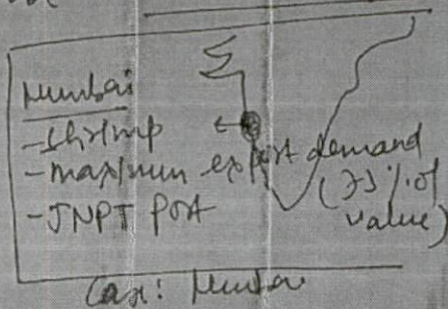 Mumbai
- Shrimp
- maximum export demand
(75% of
value)
- JNPT Port
Case: Mumbai